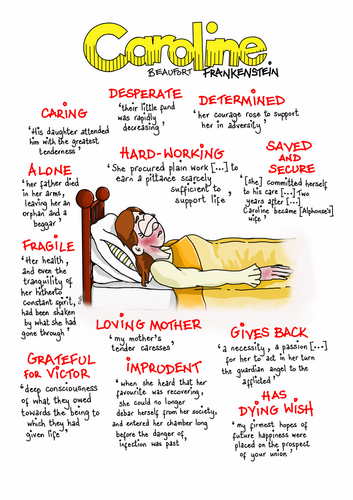 Caroline
BEAUFORT FRANKENSTEIN
CARING
'His daughter attended
him with the greatest
tenderness'
DESPERATE
'their little fund
was rapidly
decreasing'
DETERMINED
'her courage rose to support
her in adversity'
ALONE
'her father died
in her arms,
leaving her an
orphan and a
beggar'
HARD-WORKING
'She procured plain work [...] to
earn a pittance scarcely
sufficient to
support life'
SAVED
AND
SECURE
'[she] committed herself
to his care [...] Two
years after [...]
Caroline became [Alphonse's]
wife'
FRAGILE
'Her health,
and even the
tranquility of
her hitherto
constant spirit,
had been shaken
by what she had
gone through'
LOVING MOTHER
'my mother's
tender caresses'
GIVES BACK
'a necessity, a passion [...]
for her to act in her turn
the guardian angel to the
afflicted'
GRATEFUL
FOR VICTOR
'deep consciousness
of what they owed
towards the being to
which they had
given life'
IMPRUDENT
'when she heard that her
favourite was recovering,
she could no longer
debar herself from her society,
and entered her chamber long
before the danger of
infection was past'
HAS
DYING WISH
'my firmest hopes of
future happiness were
placed on the prospect
of your union'